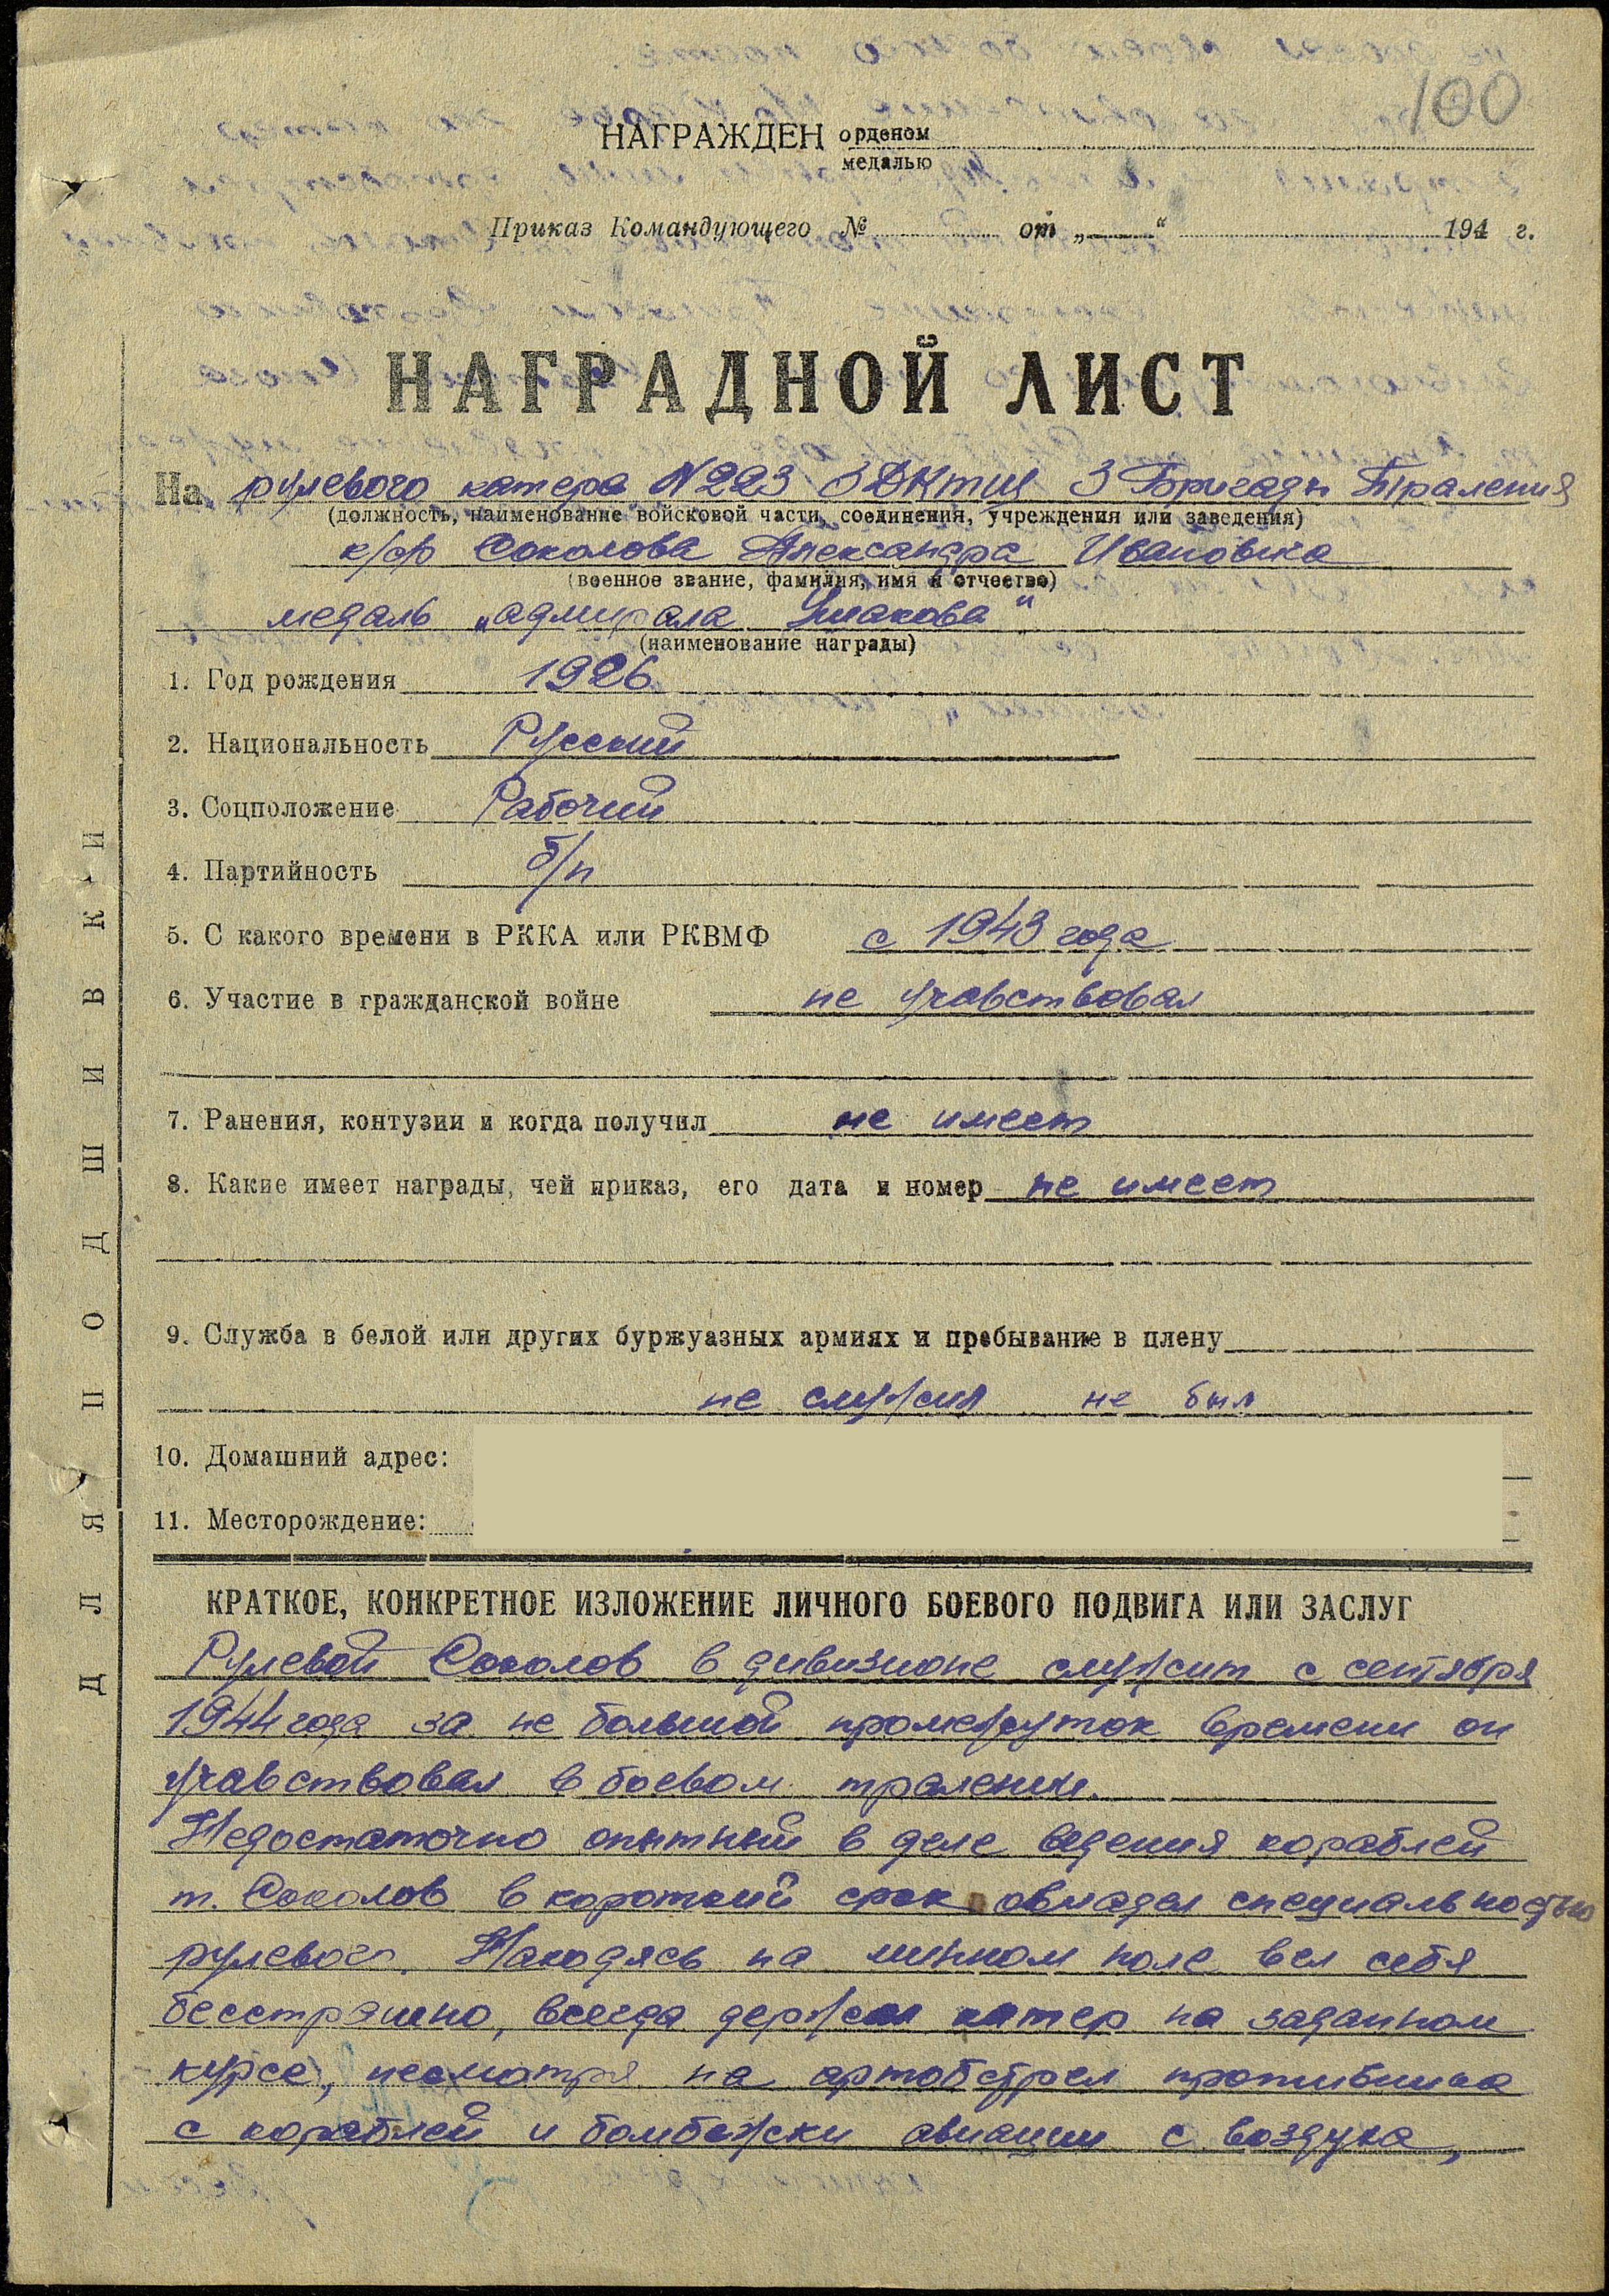 100
НАГРАЖДЕН орденом
медалью
Приказ Командующего № от „ “ 194 г.
НАГРАДНОЙ ЛИСТ
На рулевого катера №223 3 Бригады Траления
(должность, наименование войсковой части, соединения, учреждения или заведения)
к/ф Соколова Александра Ивановича
(военное звание, фамилия, имя и отчество)
медаль „адмирала Ушакова"
(наименование награды)
1. Год рождения 1926
2. Национальность Русский
3. Соцположение Рабочий
4. Партийность б/п
5. С какого времени в РККА или РКВМФ с 1943 года
6. Участие в гражданской войне не учавствовал
7. Ранения, контузии и когда получил не имеет
8. Какие имеет награды, чей приказ, его дата и номер не имеет
9. Служба в белой или других буржуазных армиях и пребывание в плену
не служил не был
10. Домашний адрес:
11. Месторождение:
КРАТКОЕ, КОНКРЕТНОЕ ИЗЛОЖЕНИЕ ЛИЧНОГО БОЕВОГО ПОДВИГА ИЛИ ЗАСЛУГ
Рулевой Соколов в дивизионе служит с сентября
1944 года за не большой промежуток времени он
учавствовал в боевом тралении.
Недостаточно опытный в деле ведения кораблей
т. Соколов в короткий срок овладел специальностью
рулевого. Находясь на минном поле вел себя
бесстрашно, всегда держал катер на заданном
курсе, несмотря на артобстрел противника
с кораблей и бомбежки авиации с воздуха,
ДЛЯ ПОДШИВКИ